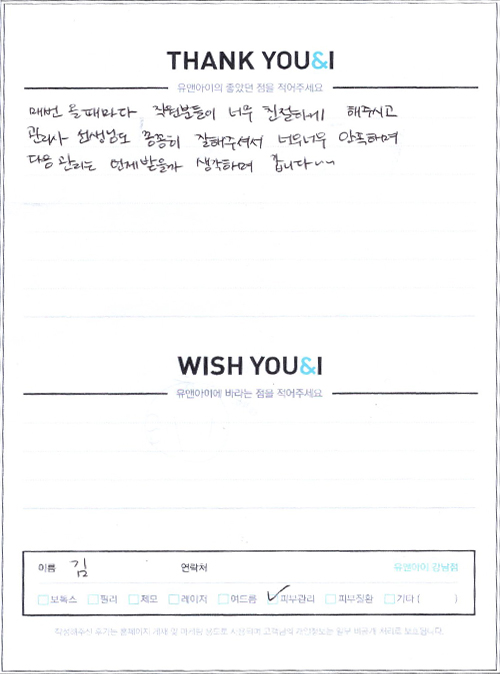 THANK YOU&I
유앤아이의 좋았던 점을 적어주세요
매번 올때마다 직원분들이 너무 친절하게 해주시고
관리사 선생님도 꼼꼼히 잘해주셔서 너무너무 만족하며
다음 관리는 언제받을까 생각하며 갑니다~~
WISH YOU&I
유앤아이에 바라는 점을 적어주세요
이름 김 연락처 유앤아이 강남점
보톡스 필러 제모 레이저 여드름 피부관리 피부질환 기타 ( )
작성해주신 후기는 홈페이지 게재 및 마케팅 용도로 사용되며 고객님의 개인정보는 일부 비공개 처리로 보호됩니다.